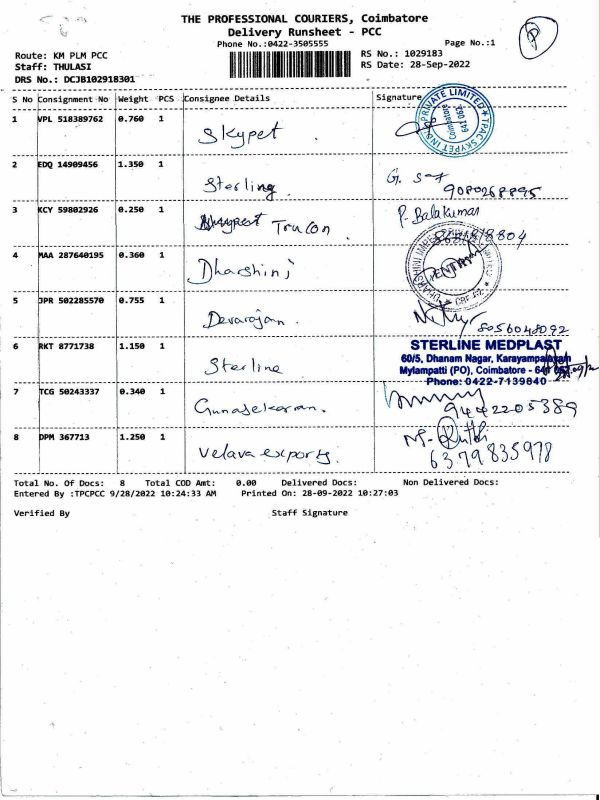 THE PROFESSIONAL COURIERS, Coimbatore
Delivery Runsheet - PCC
Phone No.:0422-3505555
Page No.:1
Route: KM PLM PCC
Staff: THULASI
DRS No.: DCJB102918301
RS No.: 1029183
RS Date: 28-Sep-2022
P
S No Consignment No Weight PCS Consignee Details Signature
1 VPL 518389762 0.760 1 Skypet
TPAC SKYPET INDIA PRIVATE LIMITED Coimbatore 641 062
2 EDQ 14909456 1.350 1 Sterling G. 9080268895
3 KCY 59802926 0.250 1 Trucon P. Balakumar
8681818804
4 MAA 287640195 0.360 1 Dharshini
5 JPR 502285570 0.755 1 Devarajan. 8056048092
6 RKT 8771738 1.150 1 Sterline
STERLINE MEDPLAST
60/5, Dhanam Nagar, Karayampalayam
Mylampatti (PO), Coimbatore - 641 062
Phone: 0422-7139840
7 TCG 50243337 0.340 1 Gunasekaran. 9442205389
8 DPM 367713 1.250 1 Velava exports. 6379835978
Total No. Of Docs: 8 Total COD Amt: 0.00 Delivered Docs: Non Delivered Docs:
Entered By :TPCPCC 9/28/2022 10:24:33 AM Printed On: 28-09-2022 10:27:03
Verified By Staff Signature